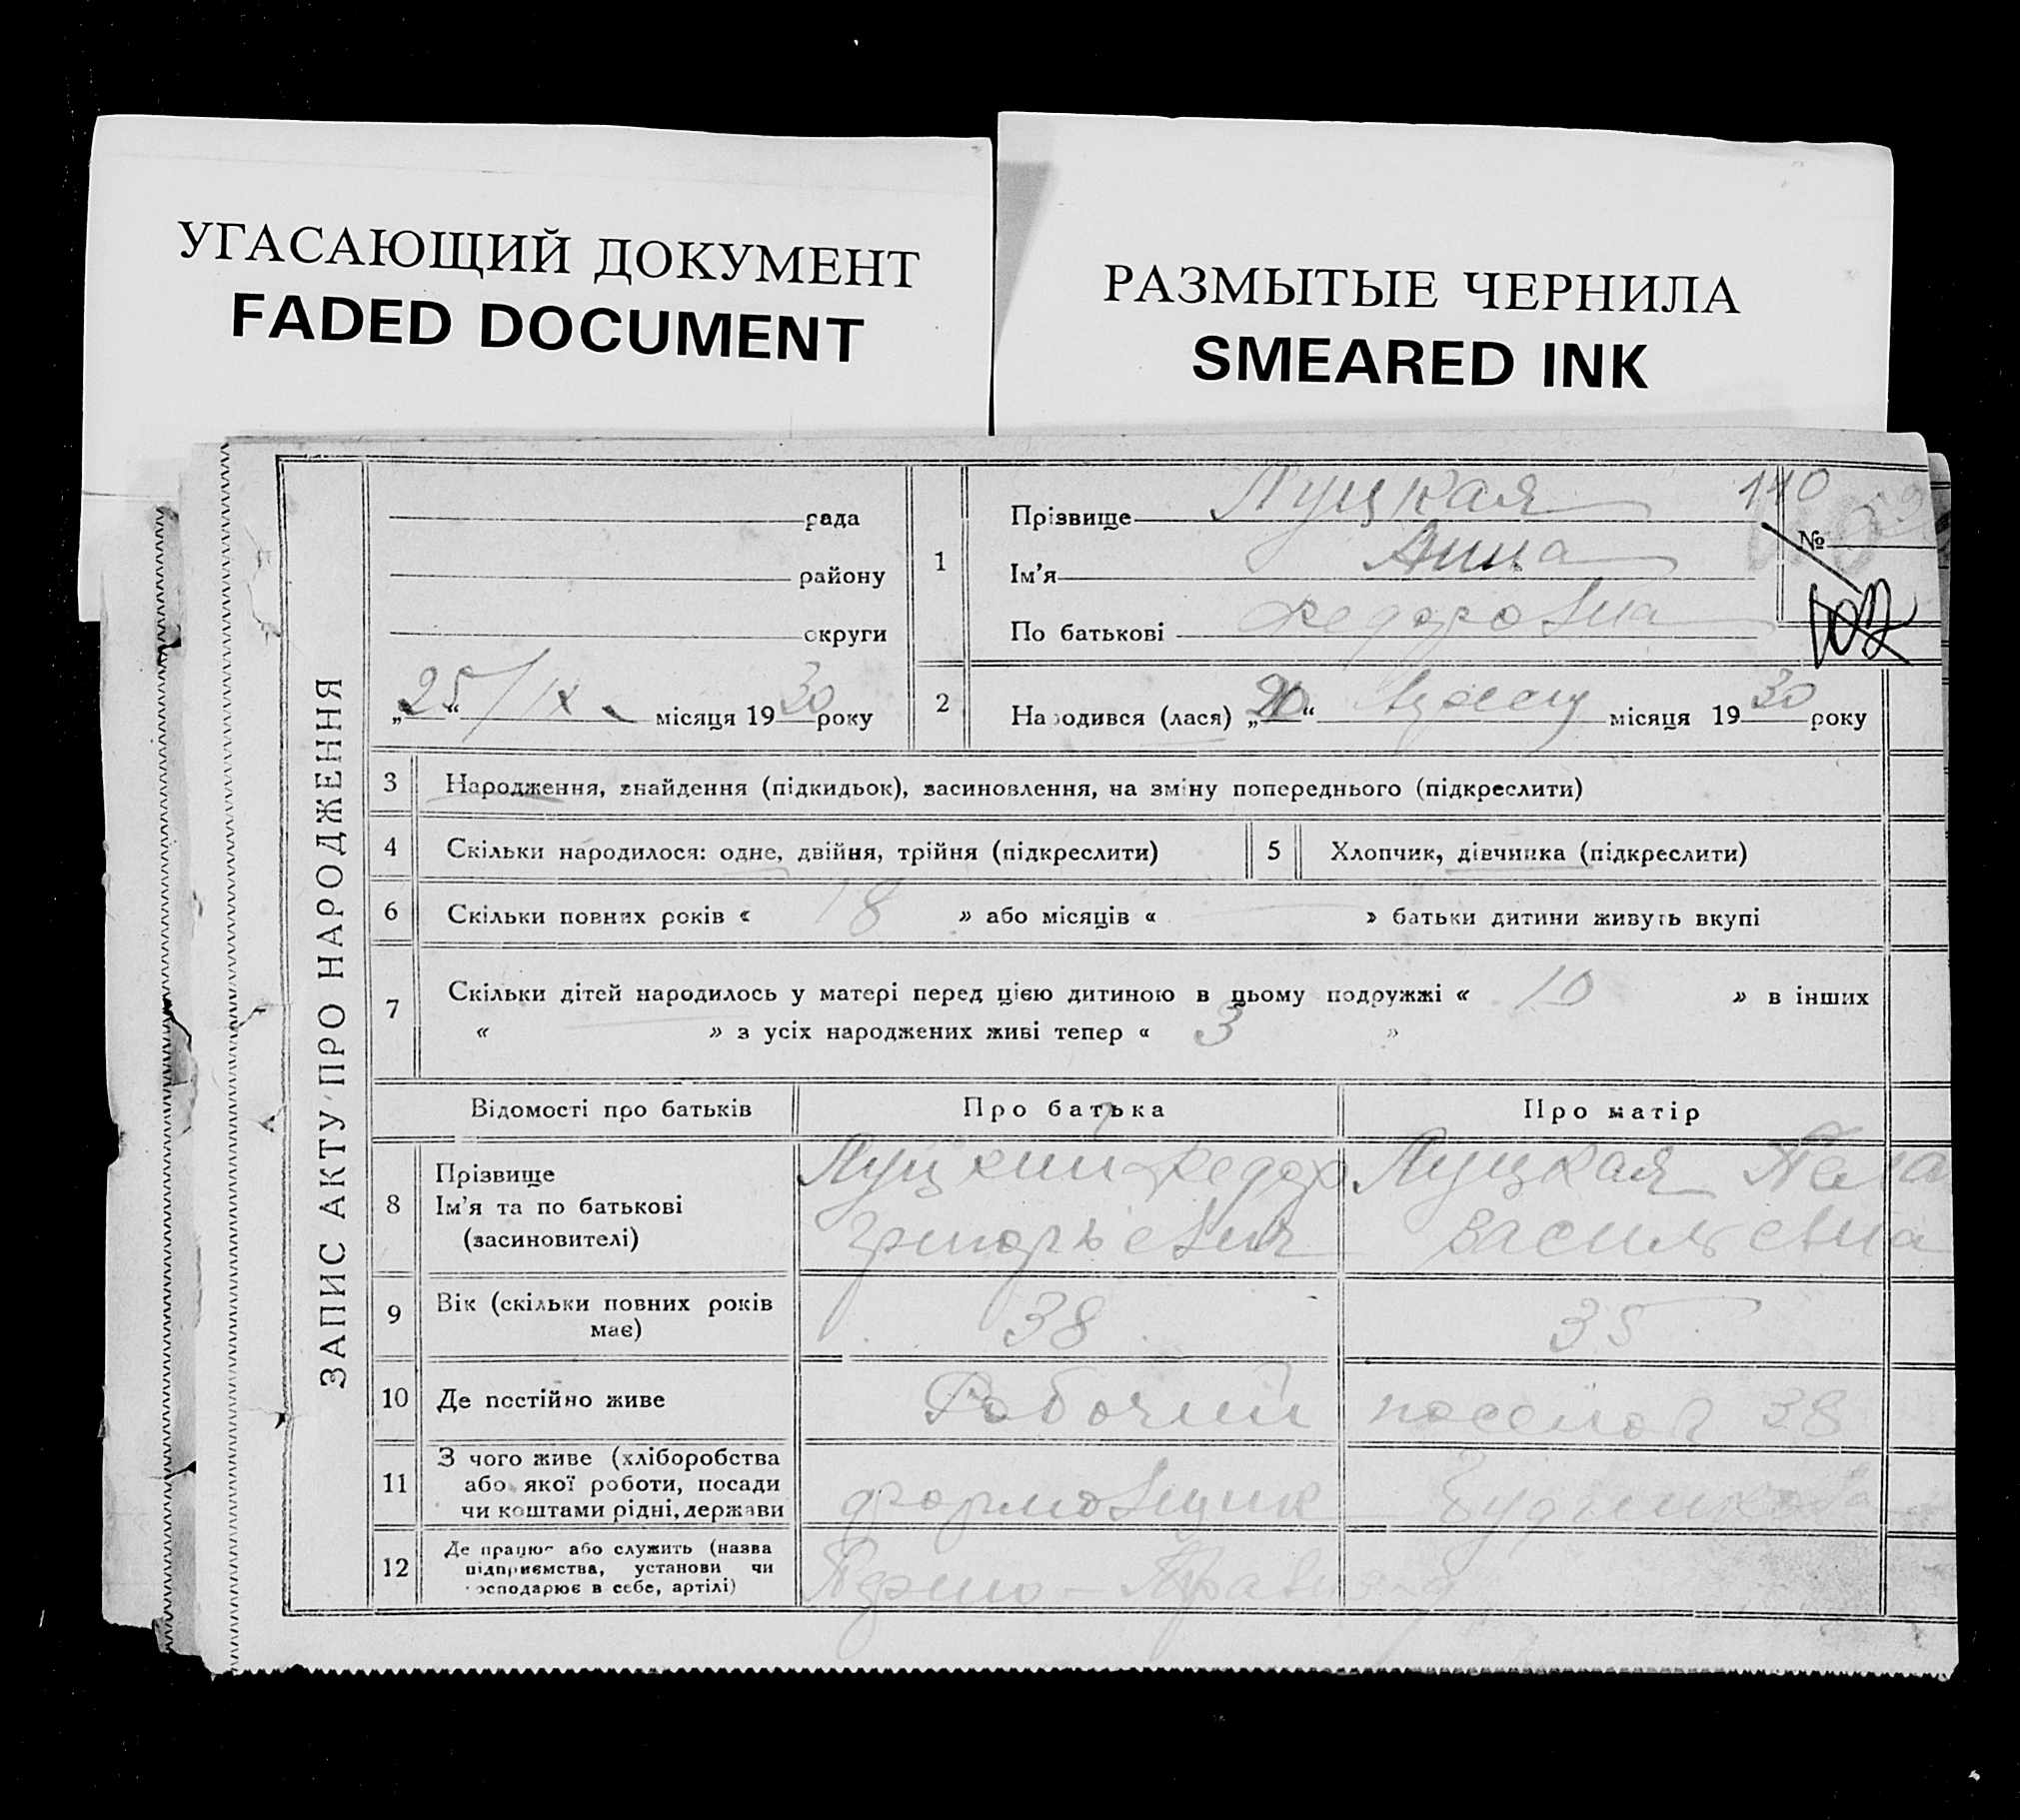 УГАСАЮЩИЙ ДОКУМЕНТ
FADED DOCUMENT
РАЗМЫТЫЕ ЧЕРНИЛА
SMEARED INK
ЗАПИС АКТУ ПРО НАРОДЖЕННЯ
рада
району
округи
„25“ /IX місяця 1930 року
1
Прізвище Луцкая
Ім'я Анна
По батькові Федоровна
140
№
102
2
Народився (лася) „20“ місяця 1930 року
3 Народження, знайдення (підкидьок), засиновлення, на зміну попереднього (підкреслити)
4 Скільки народилося: одне, двійня, трійня (підкреслити)
5 Хлопчик, дівчинка (підкреслити)
6 Скільки повних років « 18 » або місяців « — » батьки дитини живуть вкупі
7 Скільки дітей народилось у матері перед цією дитиною в цьому подружжі « 10 » в інших
« — » з усіх народжених живі тепер « 3 »
Відомості про батьків Про батька Про матір
8 Прізвище
Ім'я та по батькові
(засиновителі)
Луцкий Федор
Григорьевич
Луцкая
Васильевна
9 Вік (скільки повних років
має)
38 35
10 Де постійно живе Рабочий поселок 38
11 З чого живе (хліборобства
або якої роботи, посади
чи коштами рідні, держави
формовщик
12 Де працює або служить (назва
підприємства, установи чи
господарює в себе, артілі)